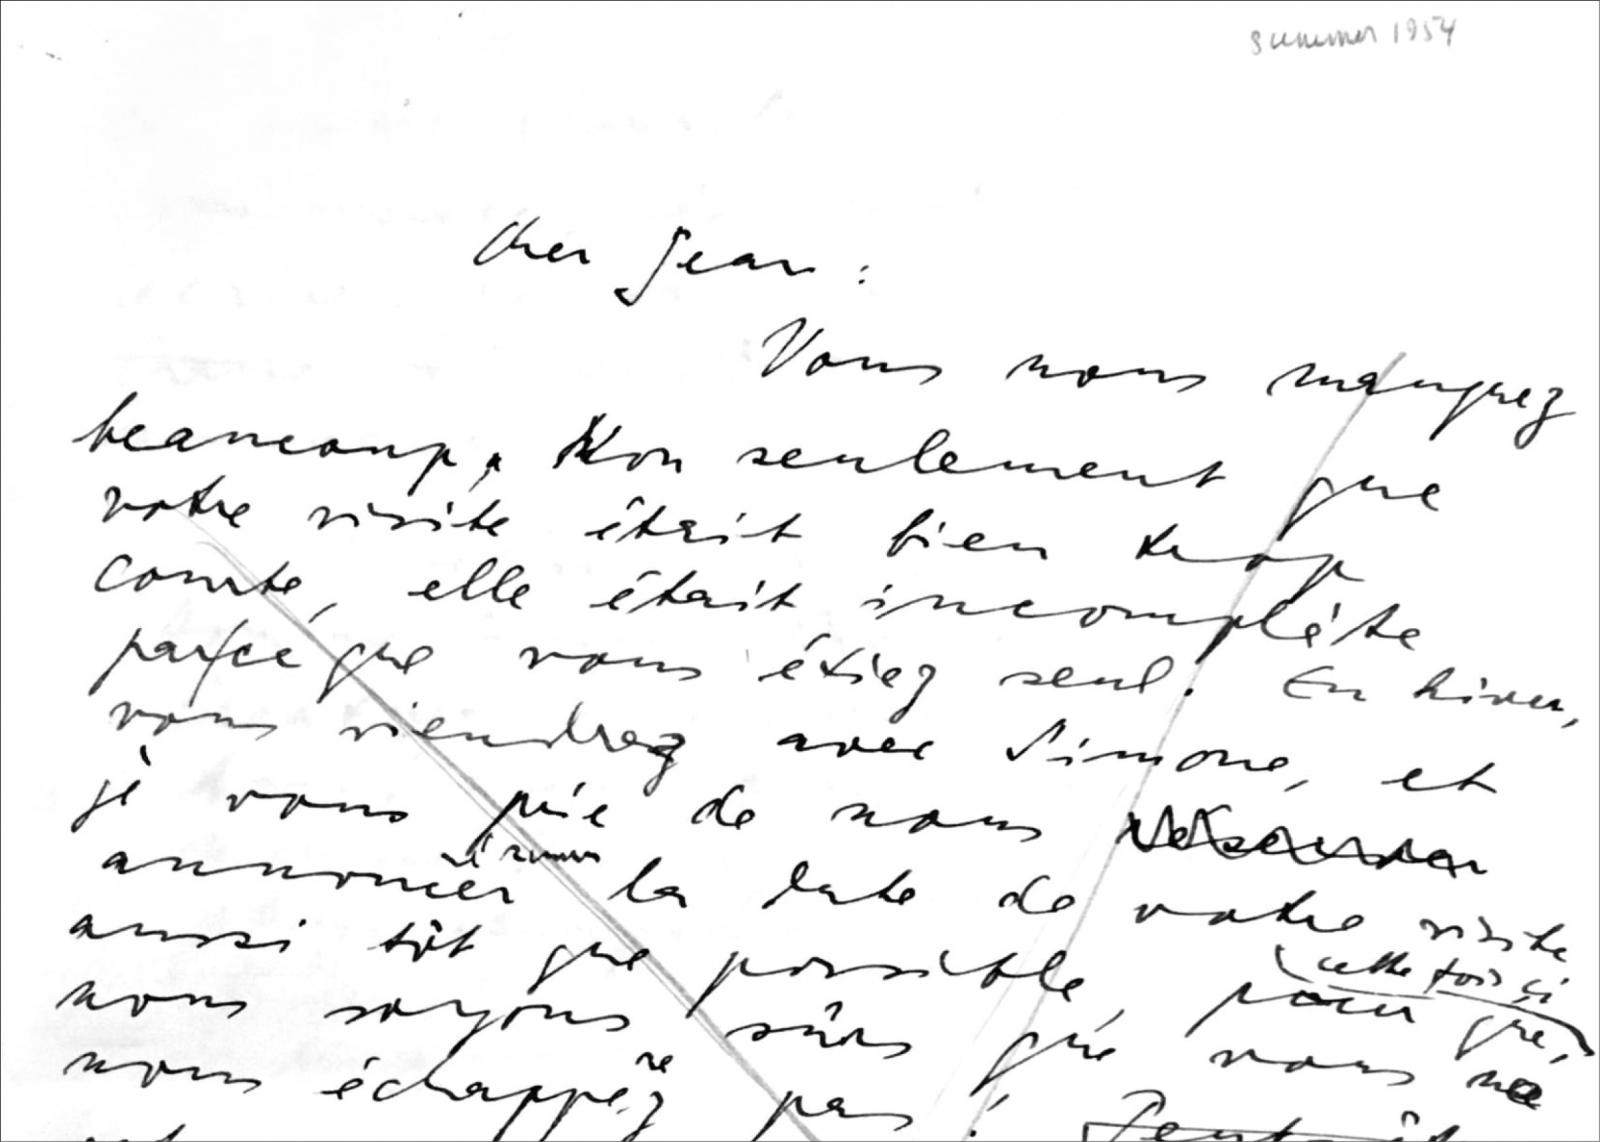 summer 1954
Cher Jean :
Vous nous manquez
beaucoup. Non seulement que
votre visite était bien trop
courte, elle était incomplète
parce que vous étiez seul. En hiver,
vous viendrez avec Simone, et
je vous prie de nous
annoncer la date de votre visite
aussi tôt que possible, pour que,
cette fois ci
nous soyons sûrs que vous ne
nous échappez pas !